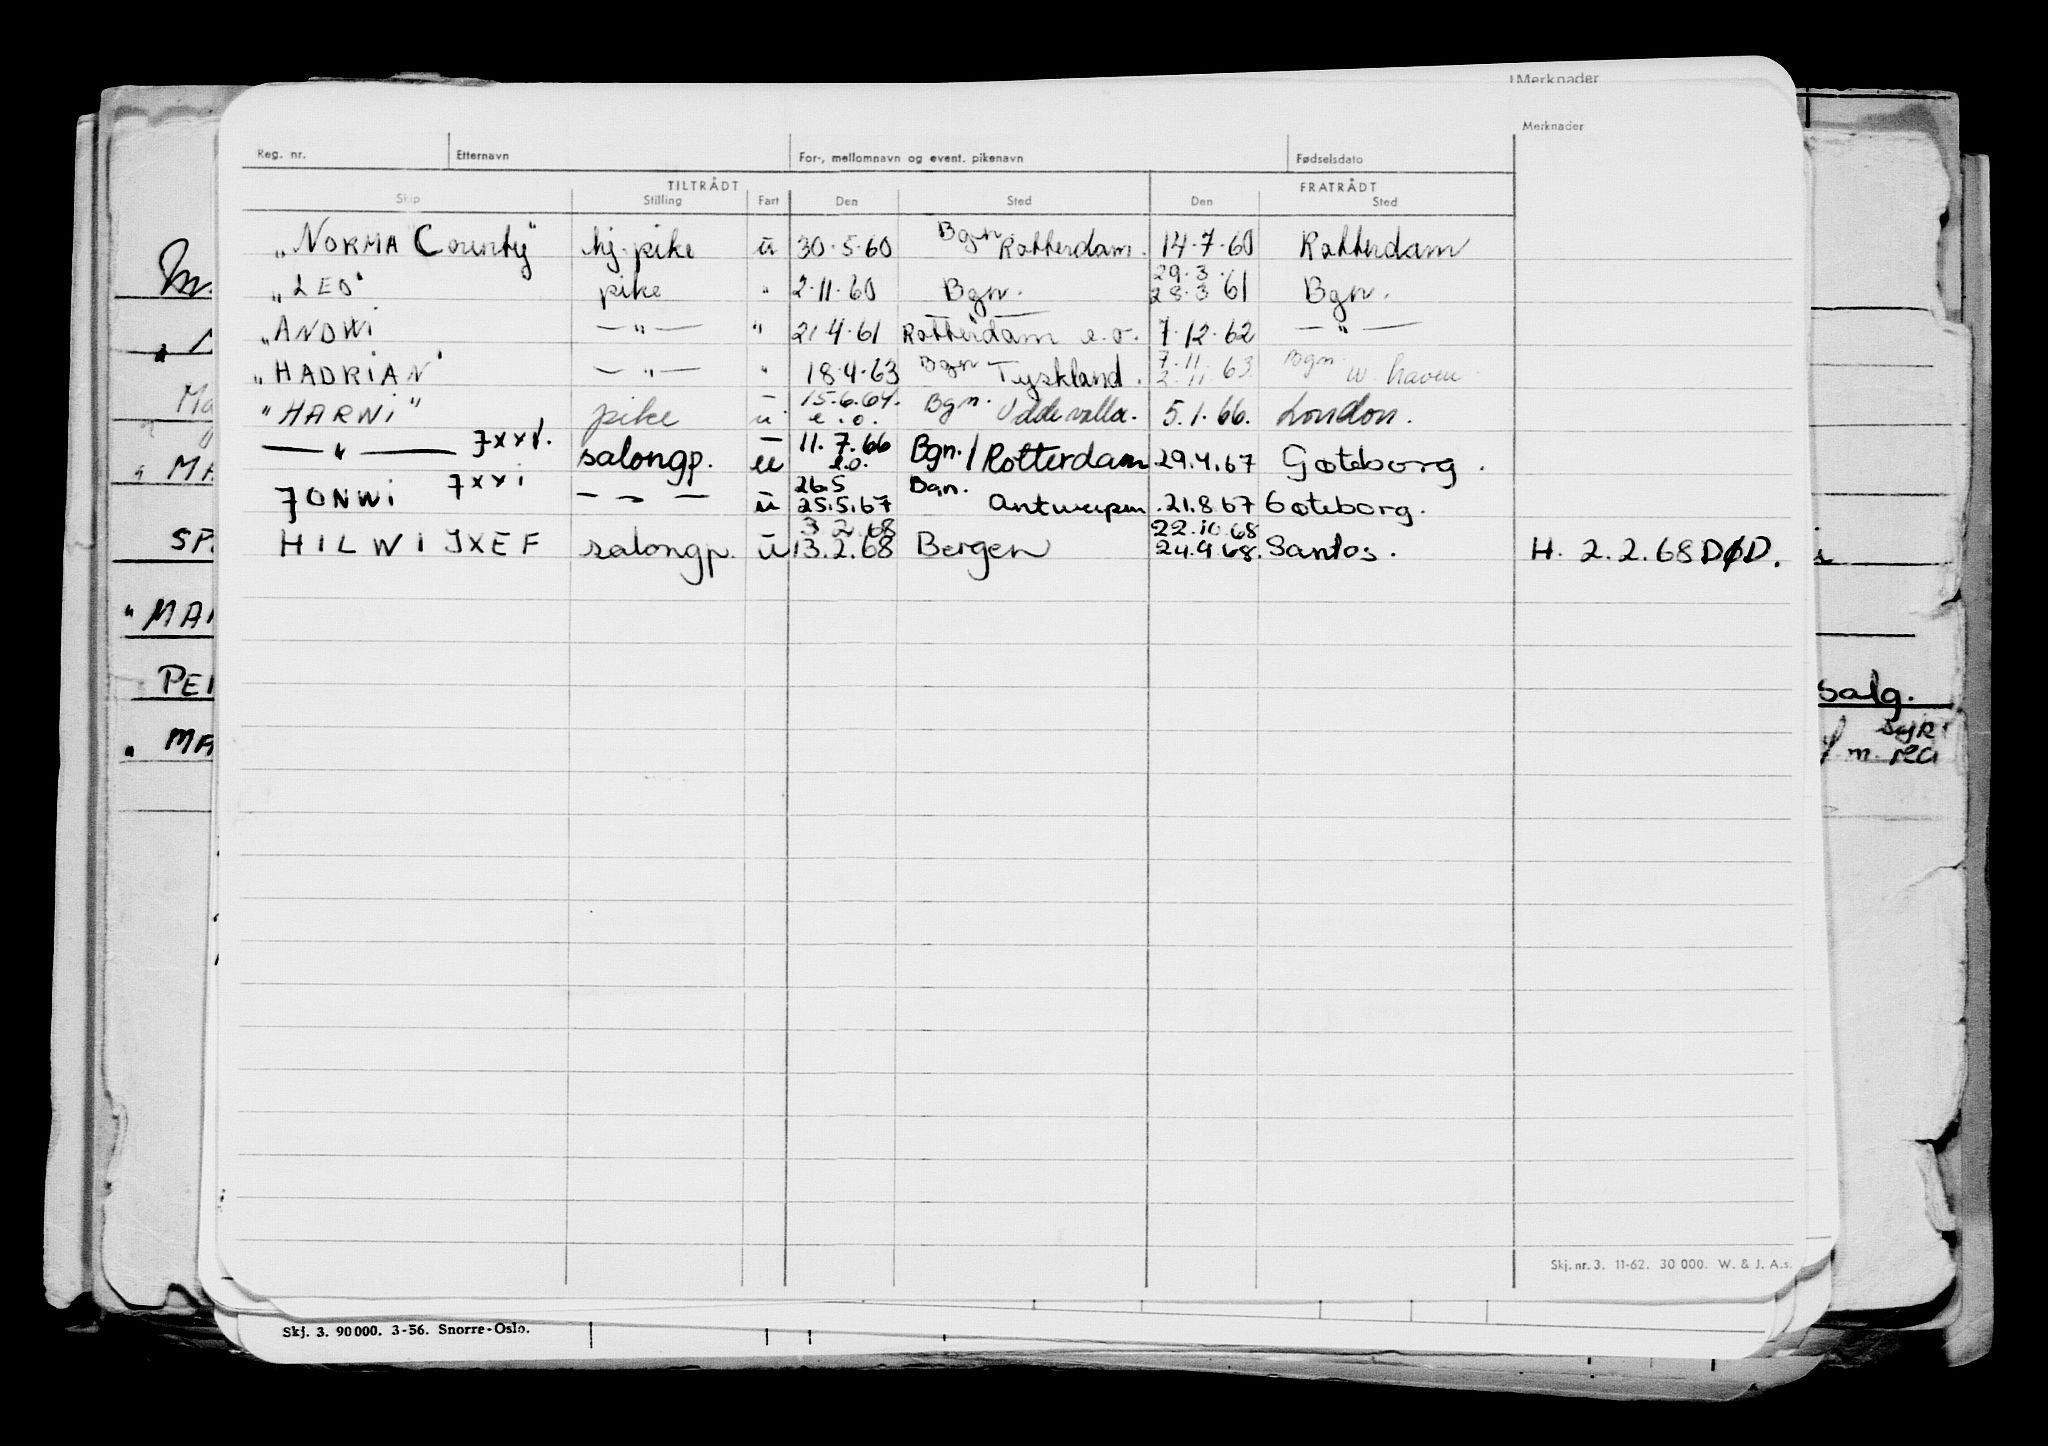 Merknader
Merknader
Reg. nr. Etternavn For-, mellomnavn og event. pikenavn Fødselsdato
TILTRÅDT FRATRÅDT
Skip Stilling Fart Den Sted Den Sted
"NORMA County" hj. pike u 30.5.60 Bgn. Rotterdam. 14.7.60 Rotterdam
29.3.
"LEO" pike " 2.11.60 Bgn. 28.3 61 Bgn.
"ANDWI — " — " 21.4.61 Rotterdam e.o. 7.12.62 — " —
7.11.
"HADRIAN" — " — " 18.4.63 Bgn Tyskland. 2.11.63 Bgn. W. haven
15.6.64.
"HARWI" pike u e.o. Bgn. Uddevalla. 5.1.66. London.
— " — 11.7.66
salongp. u e.o. Bgn. / Rotterdam 29.4.67 Gøteborg.
26.5
JONWI JXXI — " — u 25.5.67 Bgn. Antwerpen. 21.8.67 Gøteborg.
3.2.68 22.10.68
HILWI JXEF salongp. u 13.2.68 Bergen 24.9.68. Santos. H. 2.2.68 DØD.
M
SP
"MA
PE
" MA
salg.
Skj. nr. 3. 11-62. 30 000. W. & J. A.s.
Skj. 3. 90000. 3-56. Snorre-Oslo.